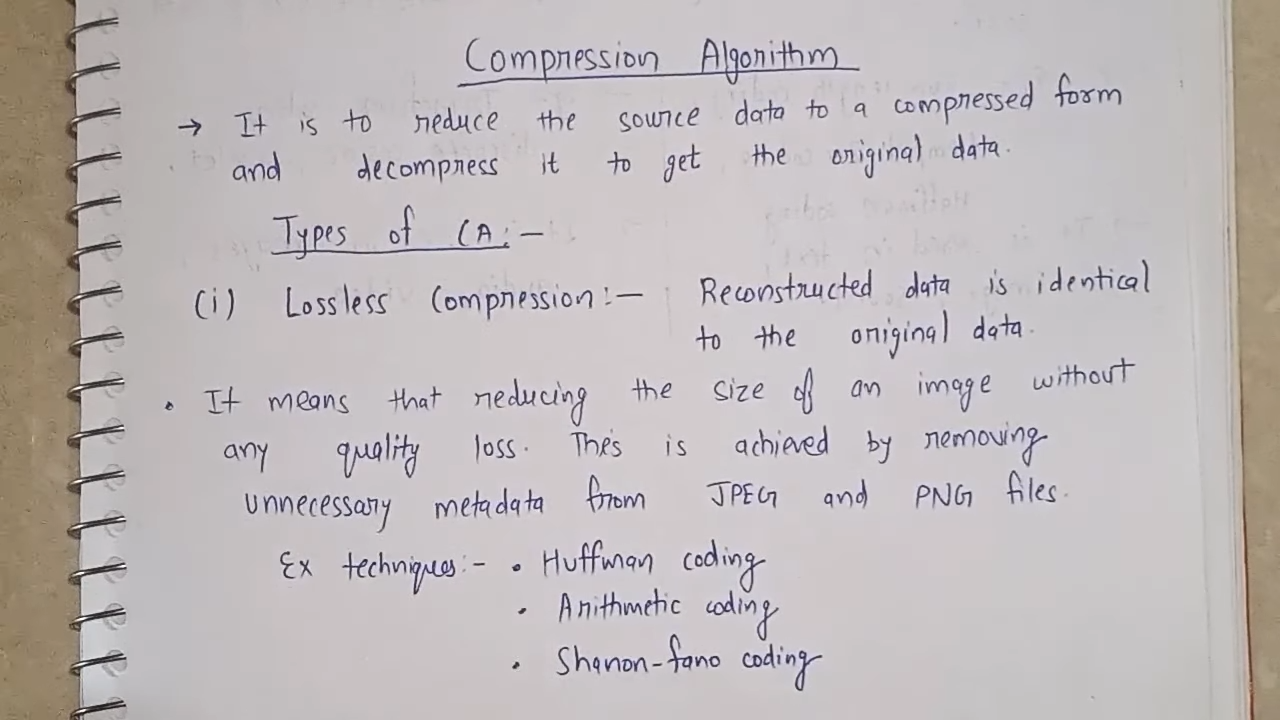 Compression Algorithm
→ It is to reduce the source data to a compressed form
and decompress it to get the original data.
Types of CA:-
(i) Lossless Compression:- Reconstructed data is identical
to the original data.
• It means that reducing the size of an image without
any quality loss. This is achieved by removing
unnecessary metadata from JPEG and PNG files.
Ex techniques:- • Huffman coding
• Arithmetic coding
• Shanon-fano coding